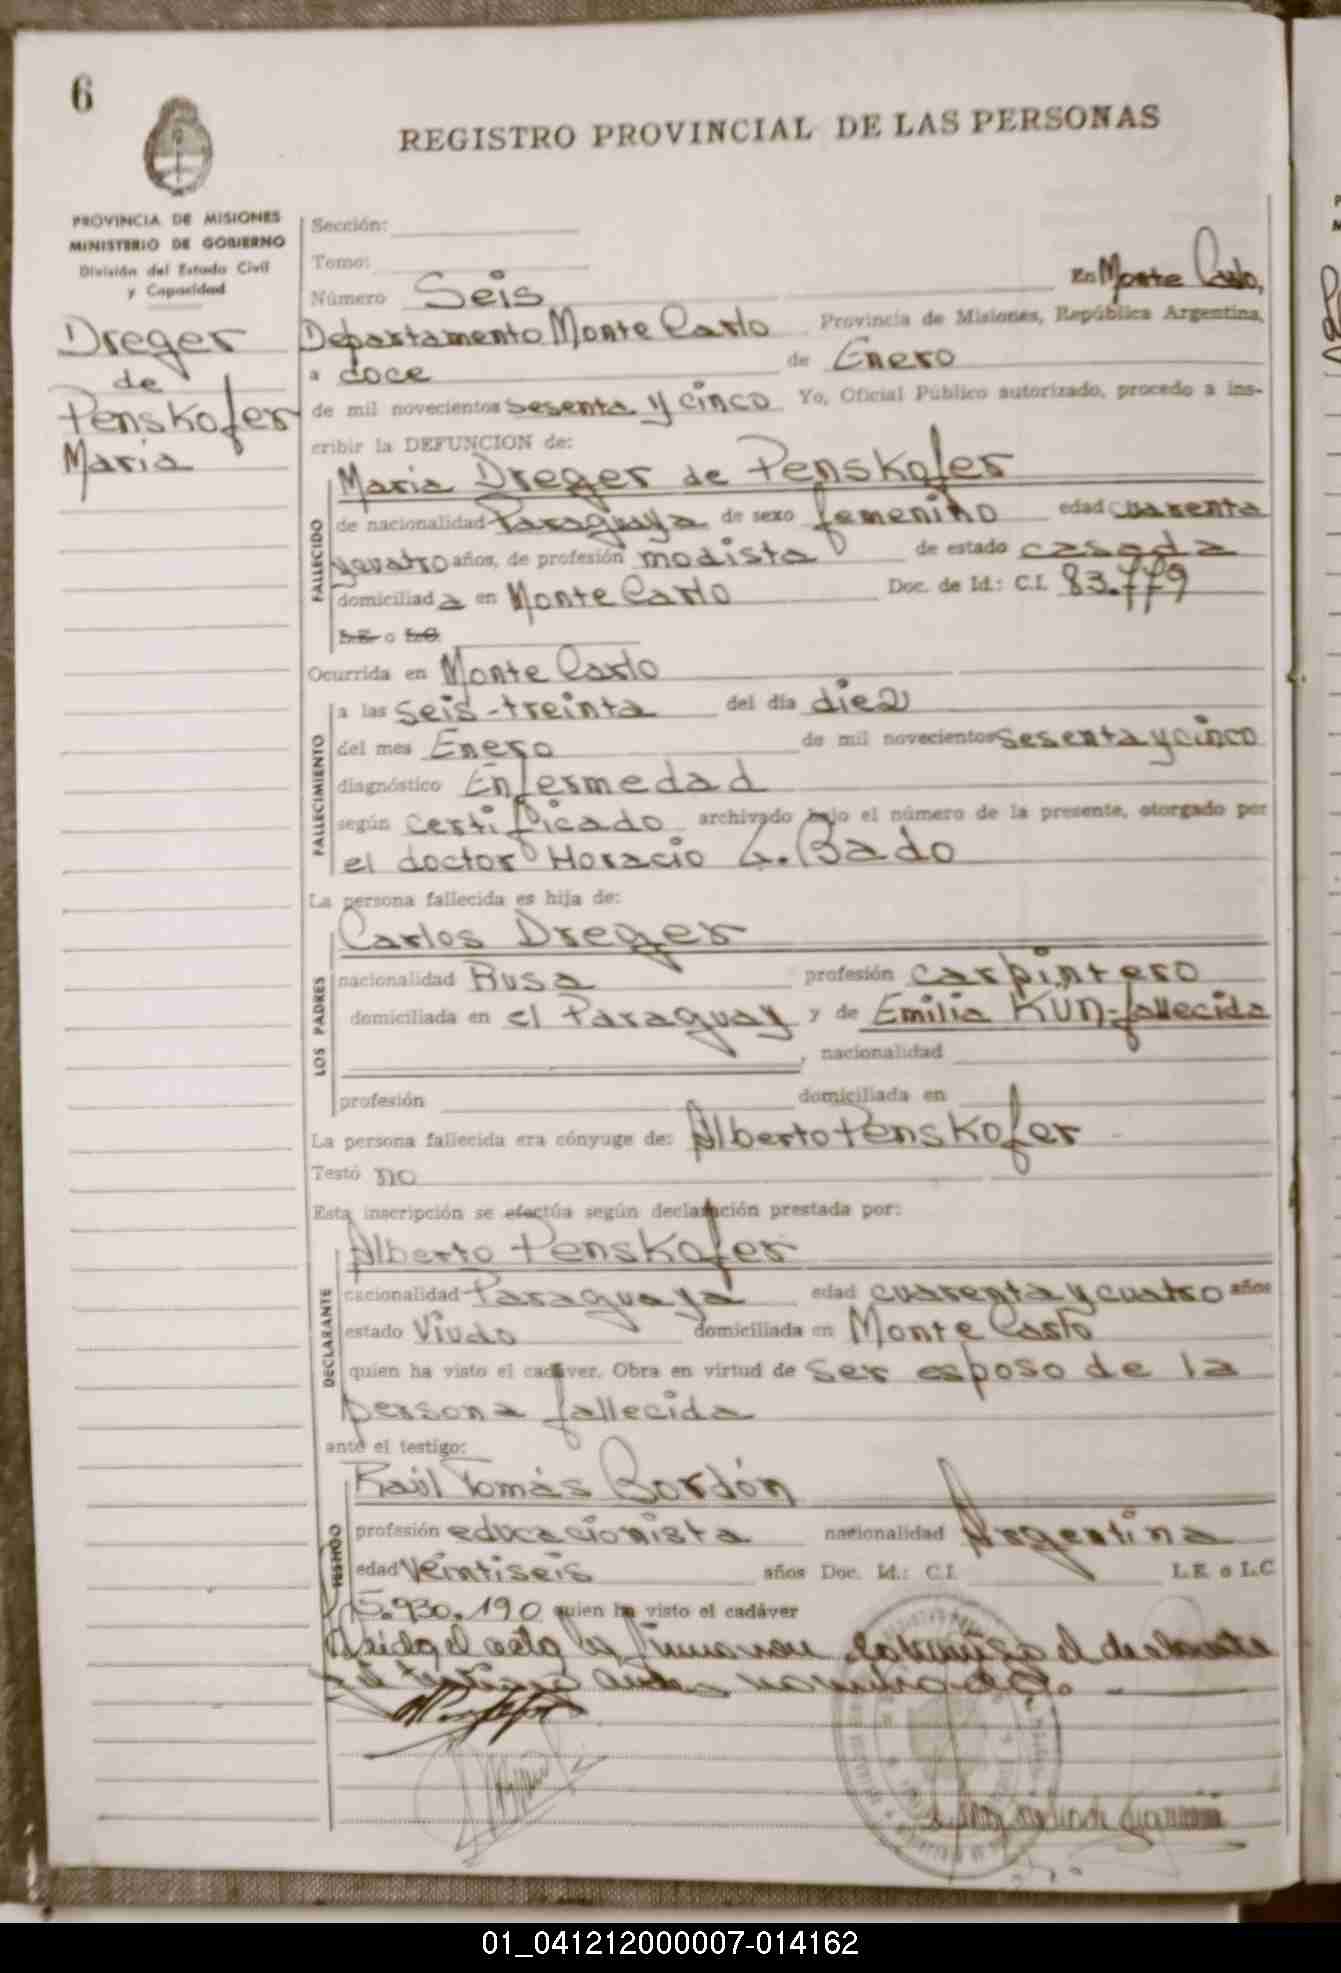 6
REGISTRO PROVINCIAL DE LAS PERSONAS
PROVINCIA DE MISIONES
MINISTERIO DE GOBIERNO
División del Estado Civil
y Capacidad
Dreger
de
Penskofer
Maria
Sección:
Tomo:
Número Seis En Monte Carlo,
Departamento Monte Carlo Provincia de Misiones, República Argentina,
a doce de Enero
de mil novecientos sesenta y cinco Yo, Oficial Público autorizado, procedo a ins-
cribir la DEFUNCION de:
Maria Dreger de Penskofer
FALLECIDO
de nacionalidad Paraguaya de sexo femenino edad cuarenta
y cuatro años, de profesión modista de estado casada
domiciliada en Monte Carlo Doc. de Id.: C.I. 83.779
L.E. o L.C.
Ocurrida en Monte Carlo
FALLECIMIENTO
a las seis-treinta del día diez
del mes Enero de mil novecientos sesenta y cinco
diagnóstico Enfermedad
según certificado archivado bajo el número de la presente, otorgado por
el doctor Horacio G. Bado
La persona fallecida es hija de:
LOS PADRES
Carlos Dreger
nacionalidad Rusa profesión carpintero
domiciliada en el Paraguay y de Emilia KUN-fallecida
, nacionalidad
profesión domiciliada en
La persona fallecida era cónyuge de: Alberto Penskofer
Testó no
Esta inscripción se efectúa según declaración prestada por:
DECLARANTE
Alberto Penskofer
nacionalidad Paraguaya edad cuarenta y cuatro años
estado Viudo domiciliada en Monte Carlo
quien ha visto el cadáver. Obra en virtud de ser esposo de la
persona fallecida
ante el testigo:
TESTIGO
Raúl Tomás Bordón
profesión educacionista nacionalidad Argentina
edad veintiseis años Doc. Id.: C.I. L.E. o L.C
5.930.190 quien ha visto el cadáver
Leida el acta la firman conmigo el declarante
y el testigo antes nombrado.
01_041212000007-014162